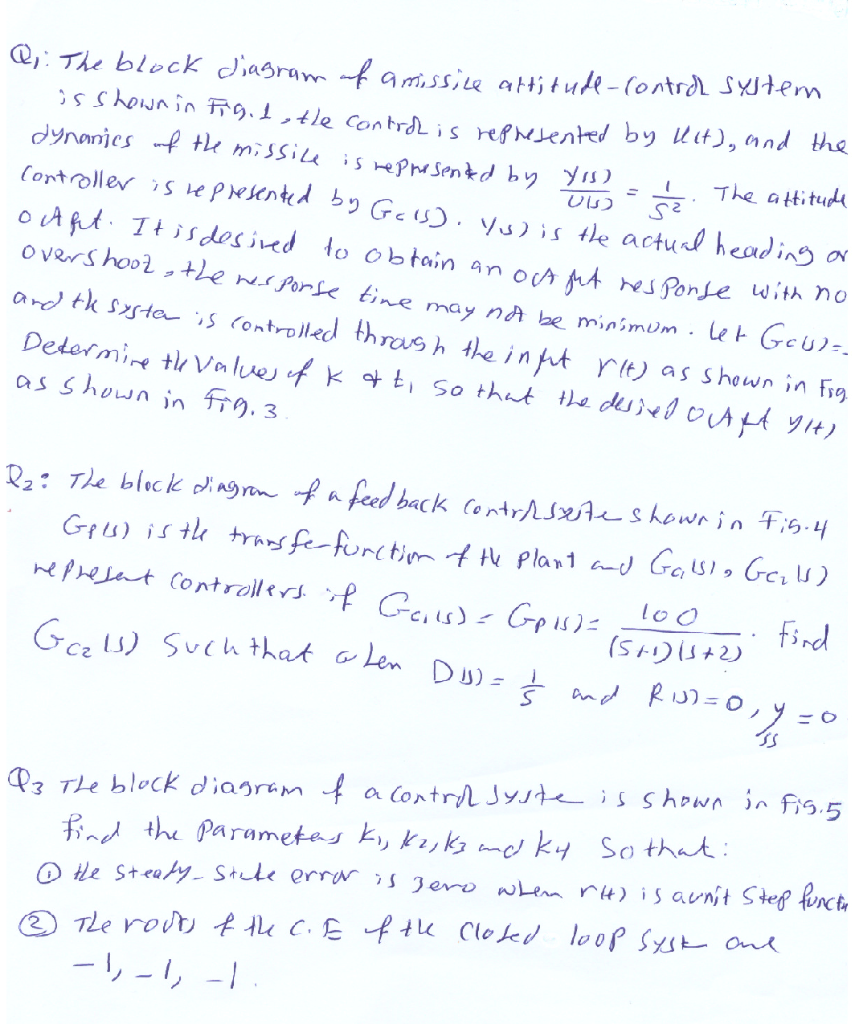 Q1: The block diagram of a missile attitude-control system
is shown in Fig.1, the control is represented by u(t), and the
dynamics of the missile is represented by Y(s)/U(s) = 1/S². The attitude
controller is represented by Gc(s). Y(s) is the actual heading or
output. It is desired to obtain an output response with no
overshoot, the response time may not be minimum. Let Gc(s)=
and the system is controlled through the input r(t) as shown in Fig
Determine the values of K & t1 so that the desired output y(t)
as shown in Fig.3.
Q2: The block diagram of a feedback control shown in Fig.4
Gp(s) is the transfer function of the plant and Gc1(s), Gc2(s)
represent controllers. if Gc1(s) = Gp(s) = 100/(S+1)(S+2). Find
Gc2(s) such that when D(s) = 1/S and R(s)=0, yss=0
Q3 The block diagram of a control syste is shown in Fig.5
find the parameters K1, K2, K3 and K4 so that:
① the steady-state error is zero when r(t) is a unit step functi
② The roots of the C.E of the closed loop syst are
-1, -1, -1.